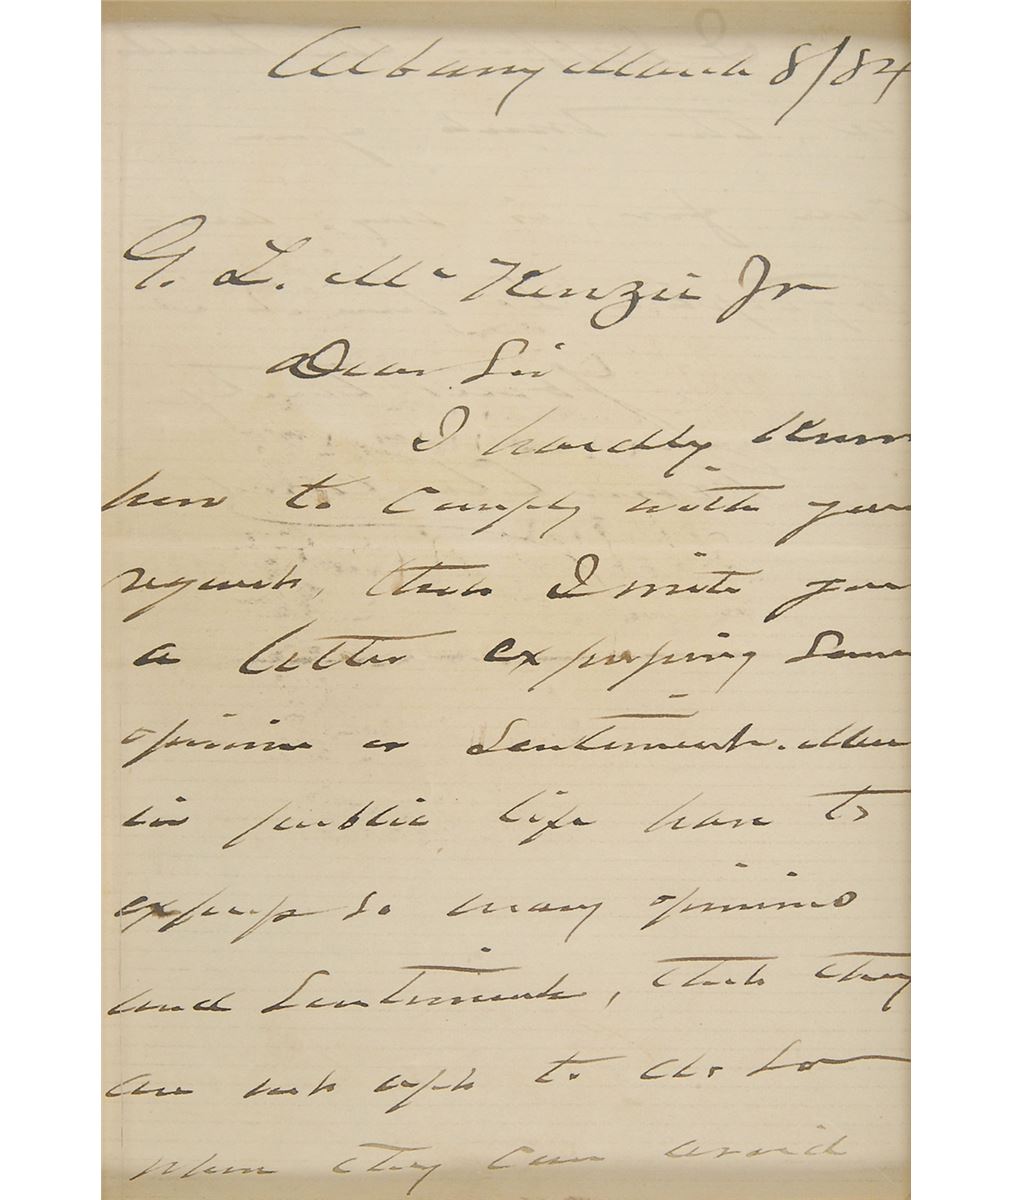 Albany March 8/84
G. L. McKenzie Jr
Dear Sir
I hardly know
how to comply with your
request, that I write you
a letter expressing some
opinion or sentiment. Men
in public life have to
express so many opinions
and sentiments, that they
are not apt to do so
when they can avoid